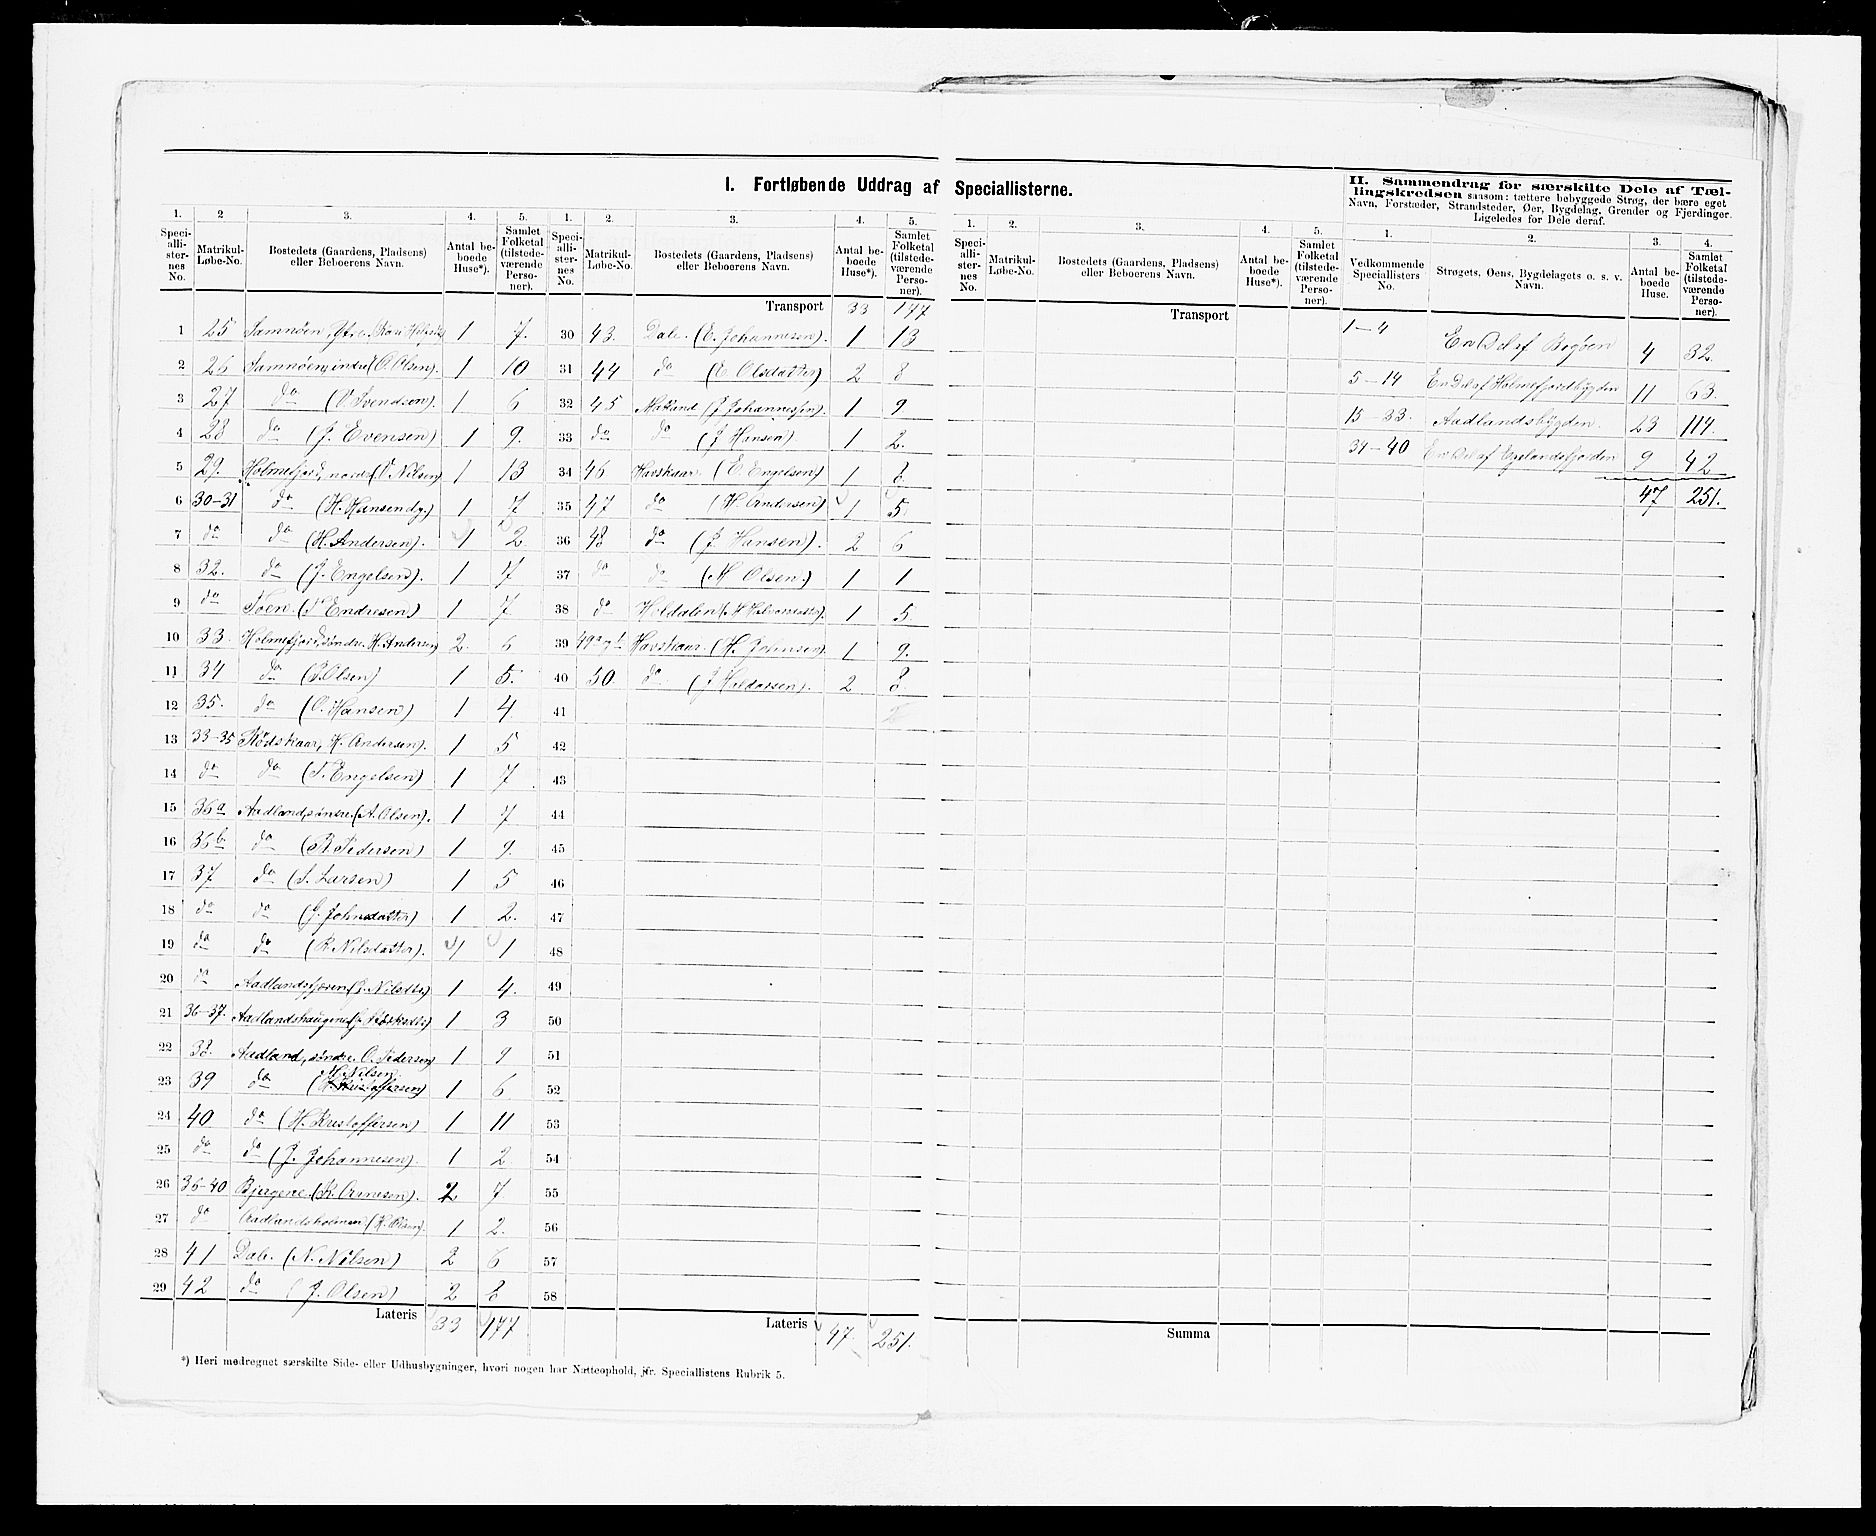 I. Fortløbende Uddrag af Speciallisterne.
II. Sammendrag for særskilte Dele af Tæl-
lingskredsen saasom: tættere bebyggede Strøg, der bære eget
Navn, Forstæder, Strandsteder, Øer, Bygdelag, Grender og Fjerdinger.
Ligeledes for Dele deraf.
1. 2 3. 4. 5. 1. 2. 3. 4. 5.
Speciallisternes No. Matrikul-Løbe-No. Bostedets (Gaardens, Pladsens) eller Beboerens Navn. Antal beboede Huse*). Samlet Folketal (tilstedeværende Personer).
Speciallisternes No. Matrikul-Løbe-No. Bostedets (Gaardens, Pladsens) eller Beboerens Navn. Antal beboede Huse*). Samlet Folketal (tilstedeværende Personer).
Transport 33 177
1 25 Samnøen, Ytre 1 7.
2 26 Samnøen, indre (O. Olsen). 1 10
3 27 do (Svendsen). 1 6
4 28 do (J. Evensen) 1 9.
5 29. Holmefjord, nordre Nilsen) 1 13
6 30-31 do (H. Hansen dy.) 1 7
7 do do (H. Andersen). 1 2
8 32. do (J. Engelsen). 1 7
9 do Toene. (Endresen) 1 7
10 33. Holmefjord, söndre. H. Andersen 2. 6
11 34 do (Olsen) 1 5.
12 35. do (O. Hansen) 1 4
13 33-35 Rödskaar, H. Andersen). 1 5
14 do do (Engelsen) 1 7
15 36a Aadland, söndre (A. Olsen). 1 7
16 36b do (Pedersen) 1 9.
17 37 do (Larsen) 1 5
18 do do (Johnsdatter) 1 2.
19 do do (R. Nilsdatter). 1 1
20 do Aadlandsfjæren (Nilsdtr) 1 4.
21 36-37. Aadlandshaugene 1 3
22 38. Aadland, söndre. O. Pedersen) 1 9
23 39 do M. Nilsen. 1 6
24 40 do (H. Kristoffersen) 1 11
25 do do (J. Johannesen). 1 2
26 36-40 Bjergene. (K. Arnesen). 2 7
27 do Aadlandsholmen (Olsen). 1 2.
28 41 Dale. (N. Nilsen) 2 6
29 42 do (J. Olsen) 2 8
Lateris 33 177
30 43. Dale. (E. Johannesen). 1 13
31 44 do (E Olsdatter) 2 8
32 45 Maland (J Johannessen). 1 9
33 do do (J Hansen) 1 2.
34 46 Havskaar. (E. Engelsen) 1 8.
35 47 do (H. Andersen) 1 5
36 48 do (J. Hansen). 2 6
37 do do (M Olsen.) 1 1
38 do Holdalen 1 5.
39 Havskaar. (H. Johnsen). 1 9.
40 50. do. (J Haldorsen). 2 8.
41
42
43
44
45
46
47
48
49
50
51
52
53
54
55
56
57
58
Lateris 47. 251.
*) Heri medregnet særskilte Side- eller Udhusbygninger, hvori nogen har Natteophold, jfr. Speciallistens Rubrik 5.
1. 2. 3. 4. 5.
Speciallisternes No. Matrikul-Løbe-No. Bostedets (Gaardens, Pladsens) eller Beboerens Navn. Antal beboede Huse*). Samlet Folketal (tilstedeværende Personer).
Transport
Summa
1. 2. 3. 4.
Vedkommende Speciallisters No. Strøgets, Øens, Bygdelagets o. s. v. Navn. Antal beboede Huse. Samlet Folketal (tilstedeværende Personer).
1-4 En Del af 4 32.
5-14 En Del af Holmefjordbygden 11 63.
15-33. Aadlandsbygden. 23 114.
34-40 En Del af 9 42
47 251.